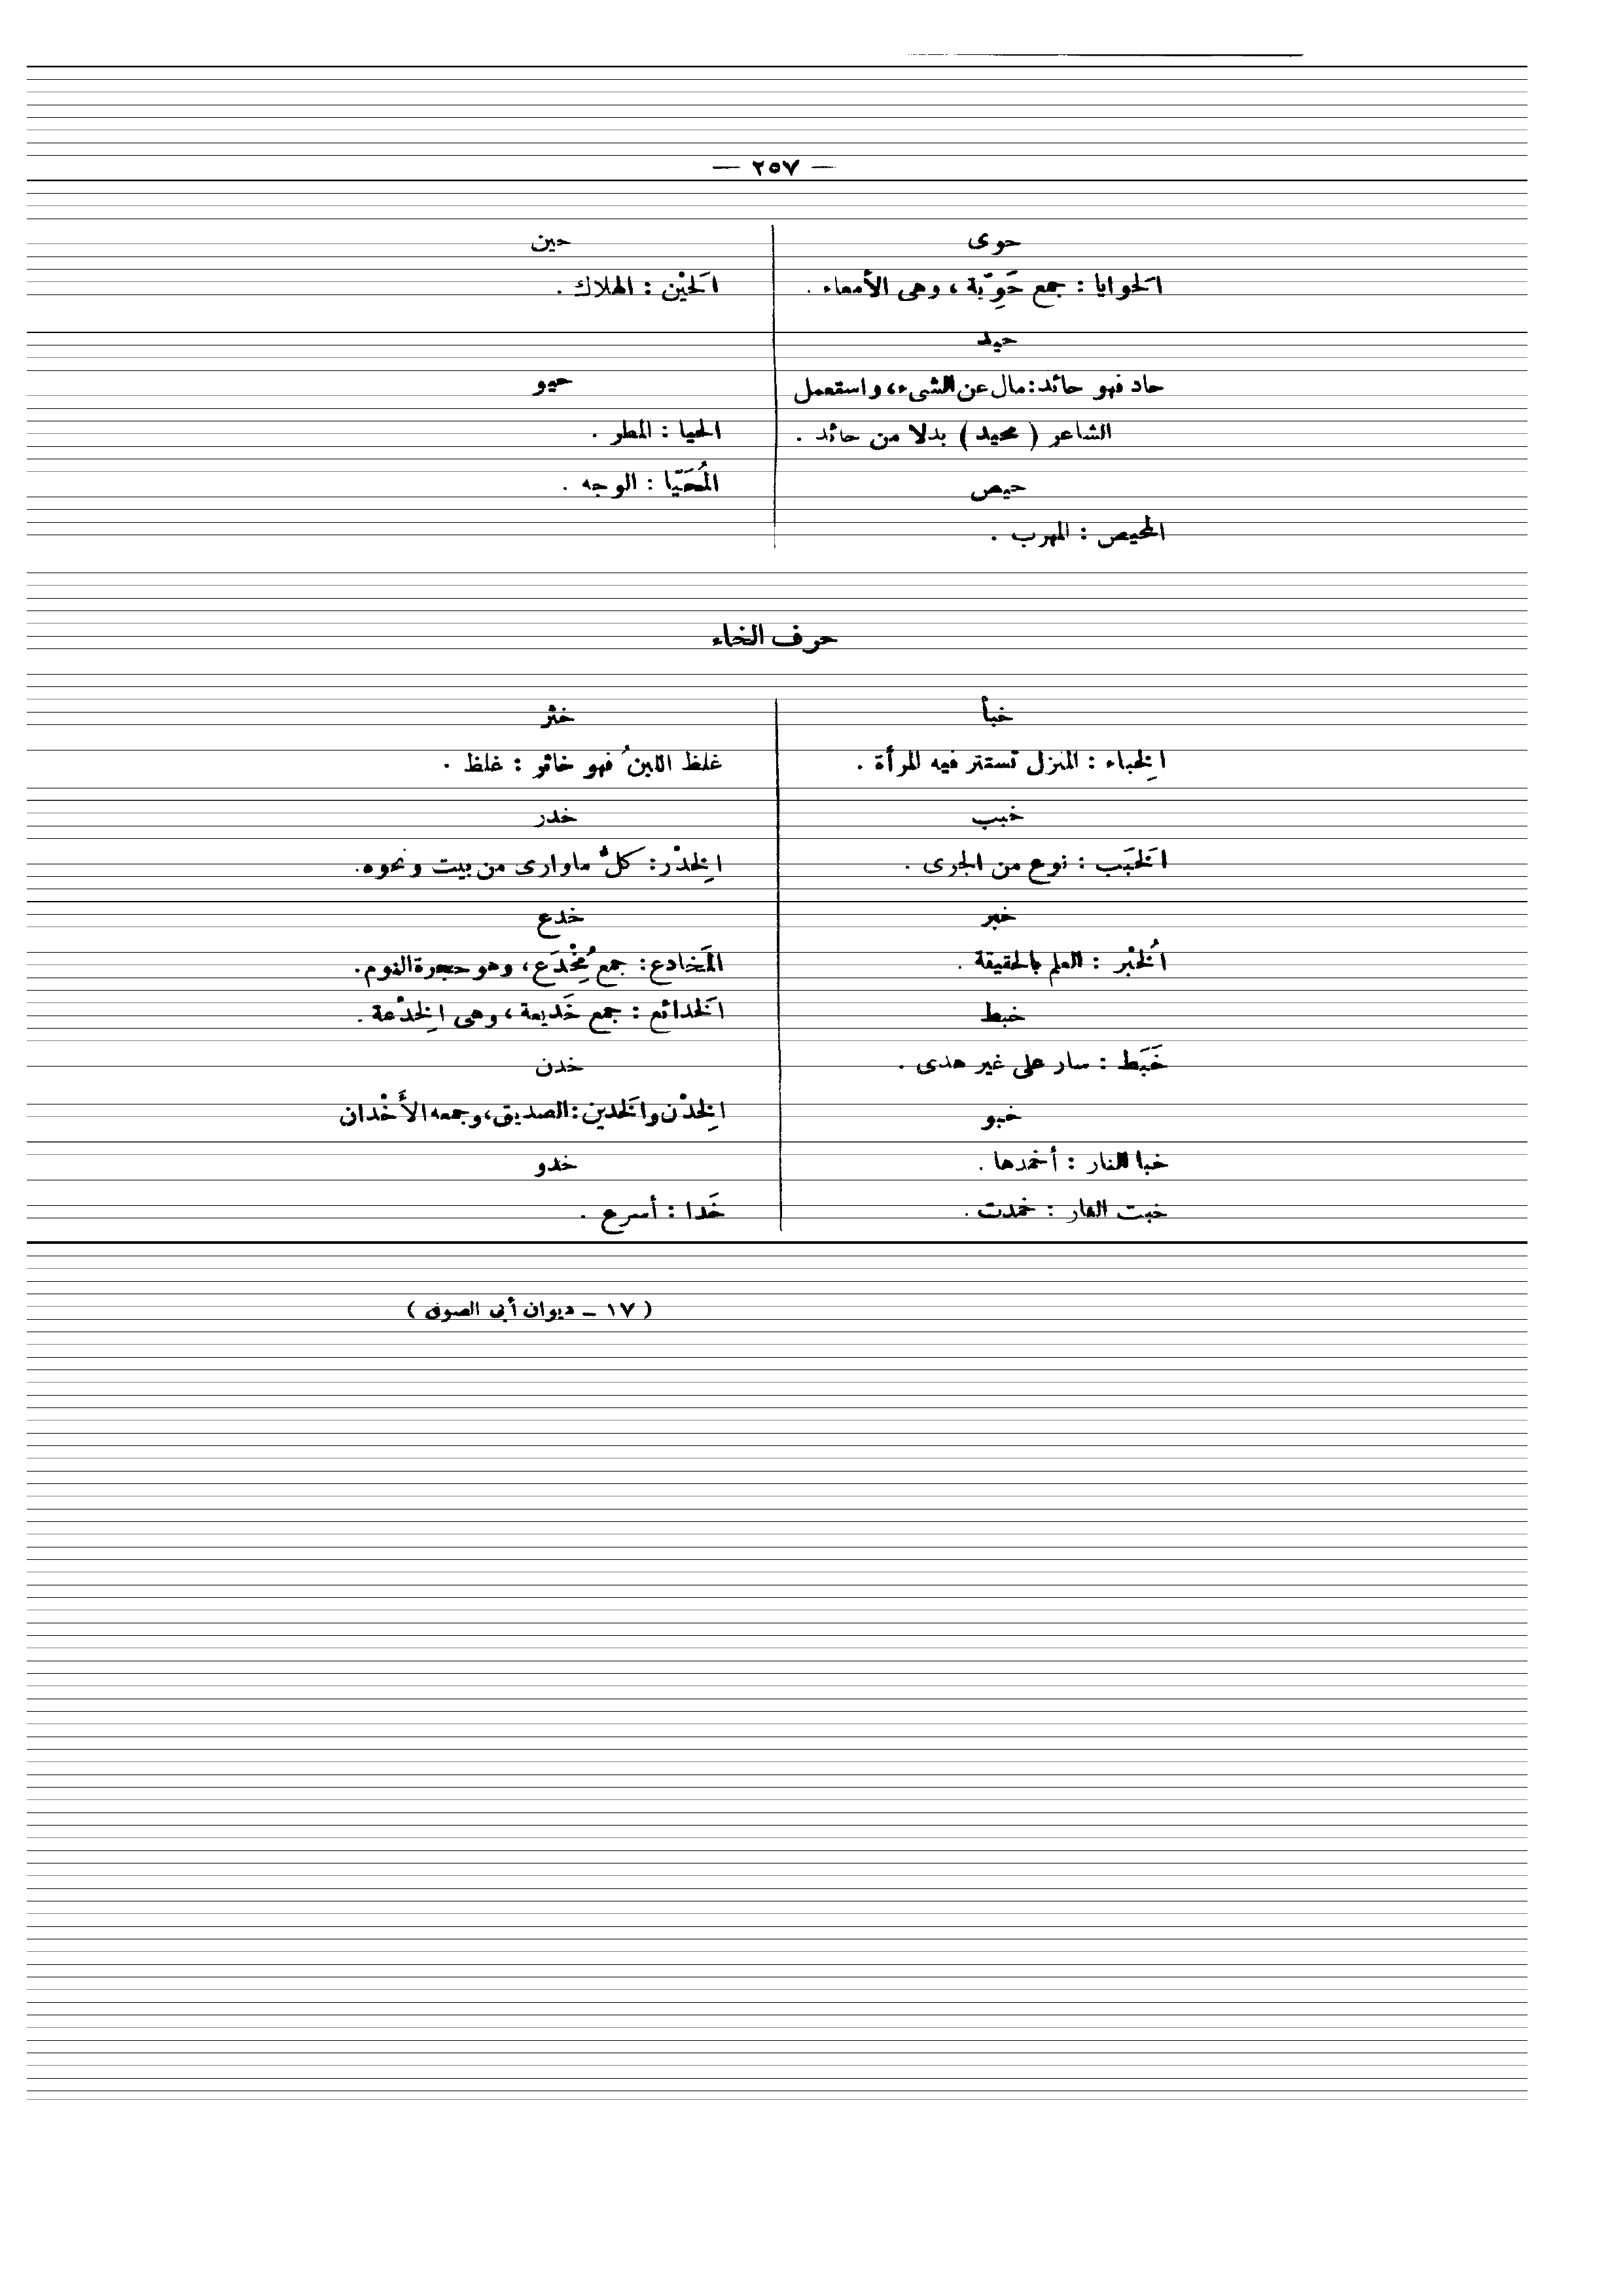 — ٢٥٧ —
حوى
الَحوايا : جمع حَوِيّة ، وهى الأمعاء .
حيد
حاد فهو حائد : مال عن الشىء ، واستعمل
الشاعر ( محيد ) بدلا من حائد .
حيص
المحيص : المهرب .
حين
الَحيْن : الهلاك .
حيو
الحيا : المطر .
المُحَيّا : الوجه .
حرف الخاء
خبأ
الِخباء : المنزل تستتر فيه المرأة .
خبب
الَخبَب : نوع من الجرى .
خبر
الُخبْر : العلم بالحقيقة .
خبط
خَبَط : سار على غير هدى .
خبو
خبا النار : أخمدها .
خبت النار : خمدت .
خثر
غلظ اللبنُ فهو خاثر : غلظ .
خدر
الِخدْر : كلّ ماوارى من بيت ونحوه .
خدع
المَخادع : جمع مُِخْدَع ، وهو حجرة النوم .
الَخدائع : جمع خَديعة ، وهى الِخدْعة .
خدن
الِخدْن والَخدين : الصديق ، وجمعه الأَخْدان
خدو
خَدا : أسرع .
( ١٧ ــ ديوان أبى الصوفى )